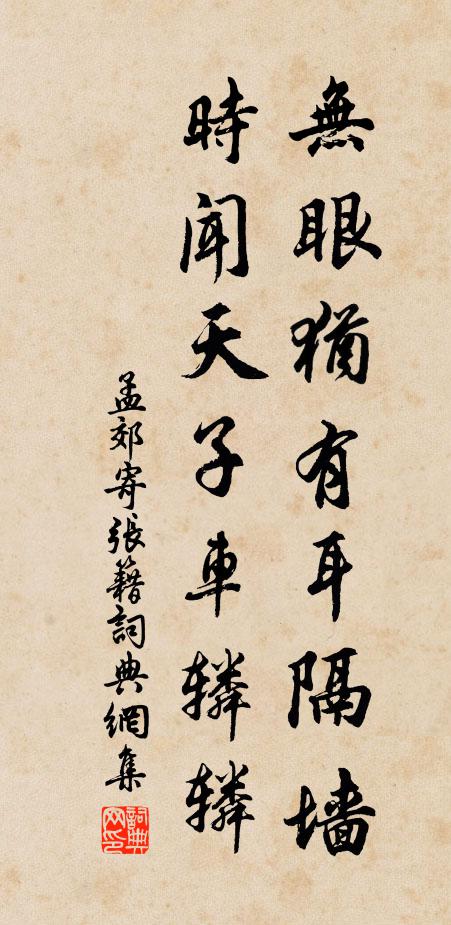 無眼猶有耳隔墻
時聞天子車轔轔
孟郊寄張籍詞典網集
詞典网印